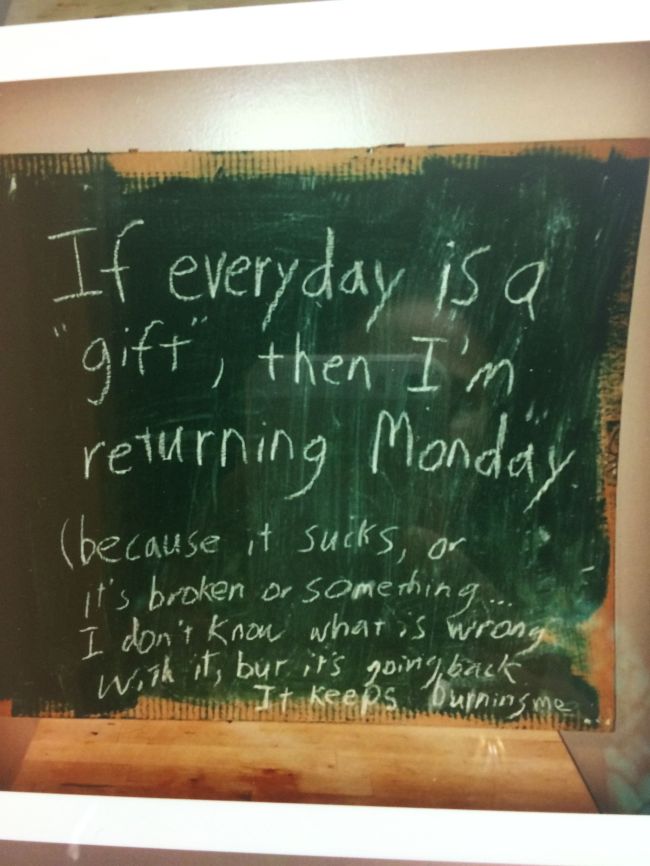 If everyday is a
"gift", then I'm
returning Monday
(because it sucks, or
it's broken or something...
I don't know what is wrong
with it, but it's going back
It keeps burning me...